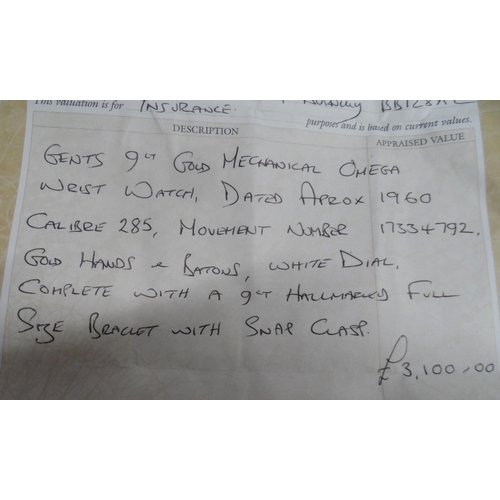 This valuation is for INSURANCE. BB12 8
purposes and is based on current values.
DESCRIPTION APPRAISED VALUE
GENTS 9CT GOLD MECHANICAL OMEGA
WRIST WATCH, DATED APROX 1960
CALIBRE 285, MOVEMENT NUMBER 17334792.
GOLD HANDS & BATONS, WHITE DIAL.
COMPLETE WITH A 9CT HALLMARKED FULL
SIZE BRACLET WITH SNAP CLASP.
£3,100.00